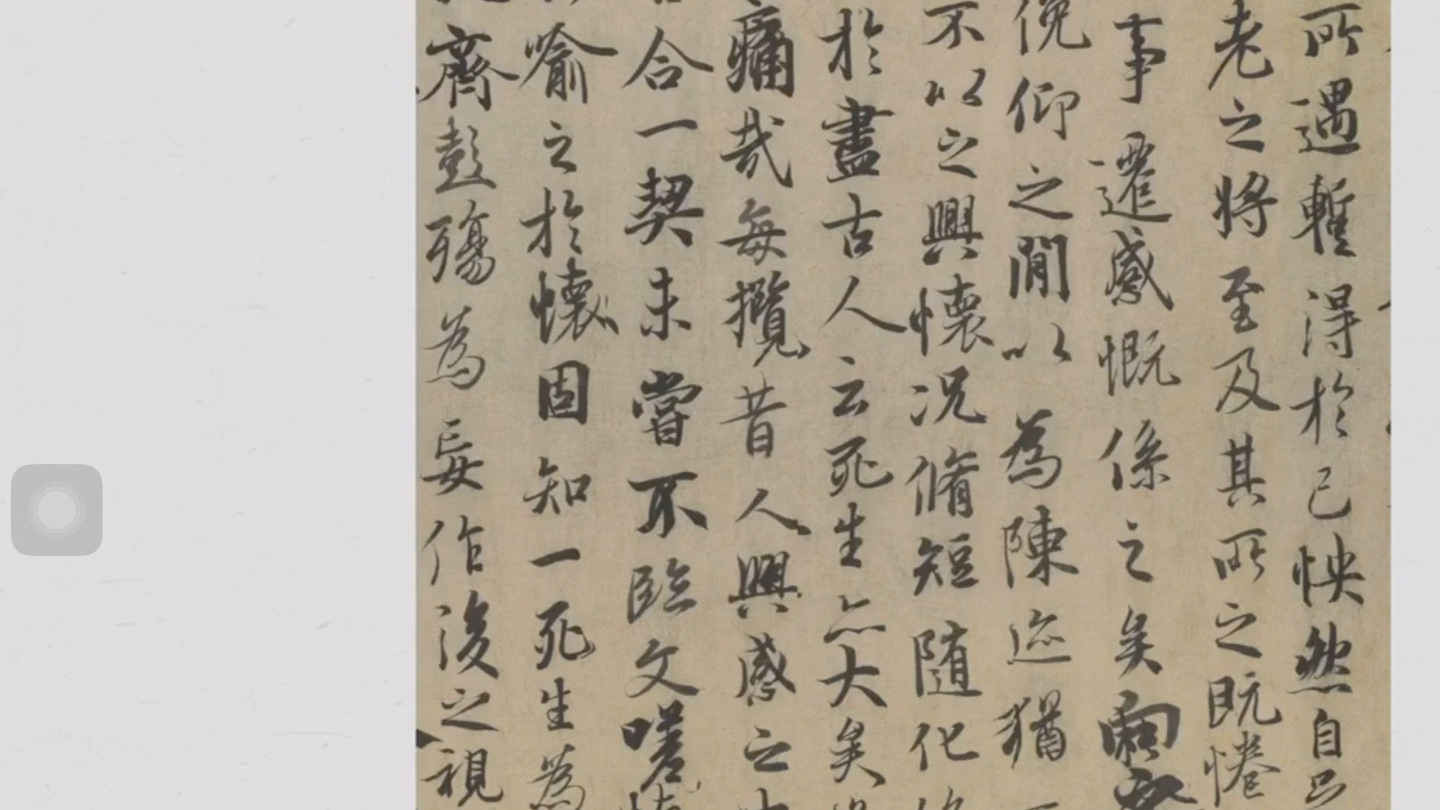 所遇暫得於己怏然自
老之将至及其所之既惓
事遷感慨係之矣向
俛仰之閒以為陳迹猶
不以之興懷况脩短隨化
於盡古人云死生亦大矣
痛哉每攬昔人興感之
合一契未嘗不臨文嗟
喻之於懷固知一死生為
齊彭殤為妄作後之視